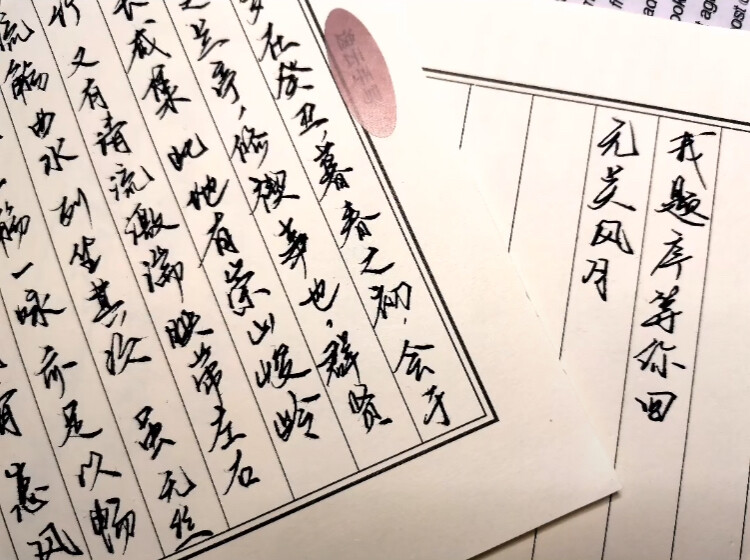 我题序等你回
无关风月
在癸丑,暮春之初,会于
之兰亭,修禊事也,群贤
咸集 此地有崇山峻岭
竹 又有清流激湍 映带左右
流觞曲水 列坐其次 虽无丝
觞一咏 亦足以畅
惠风